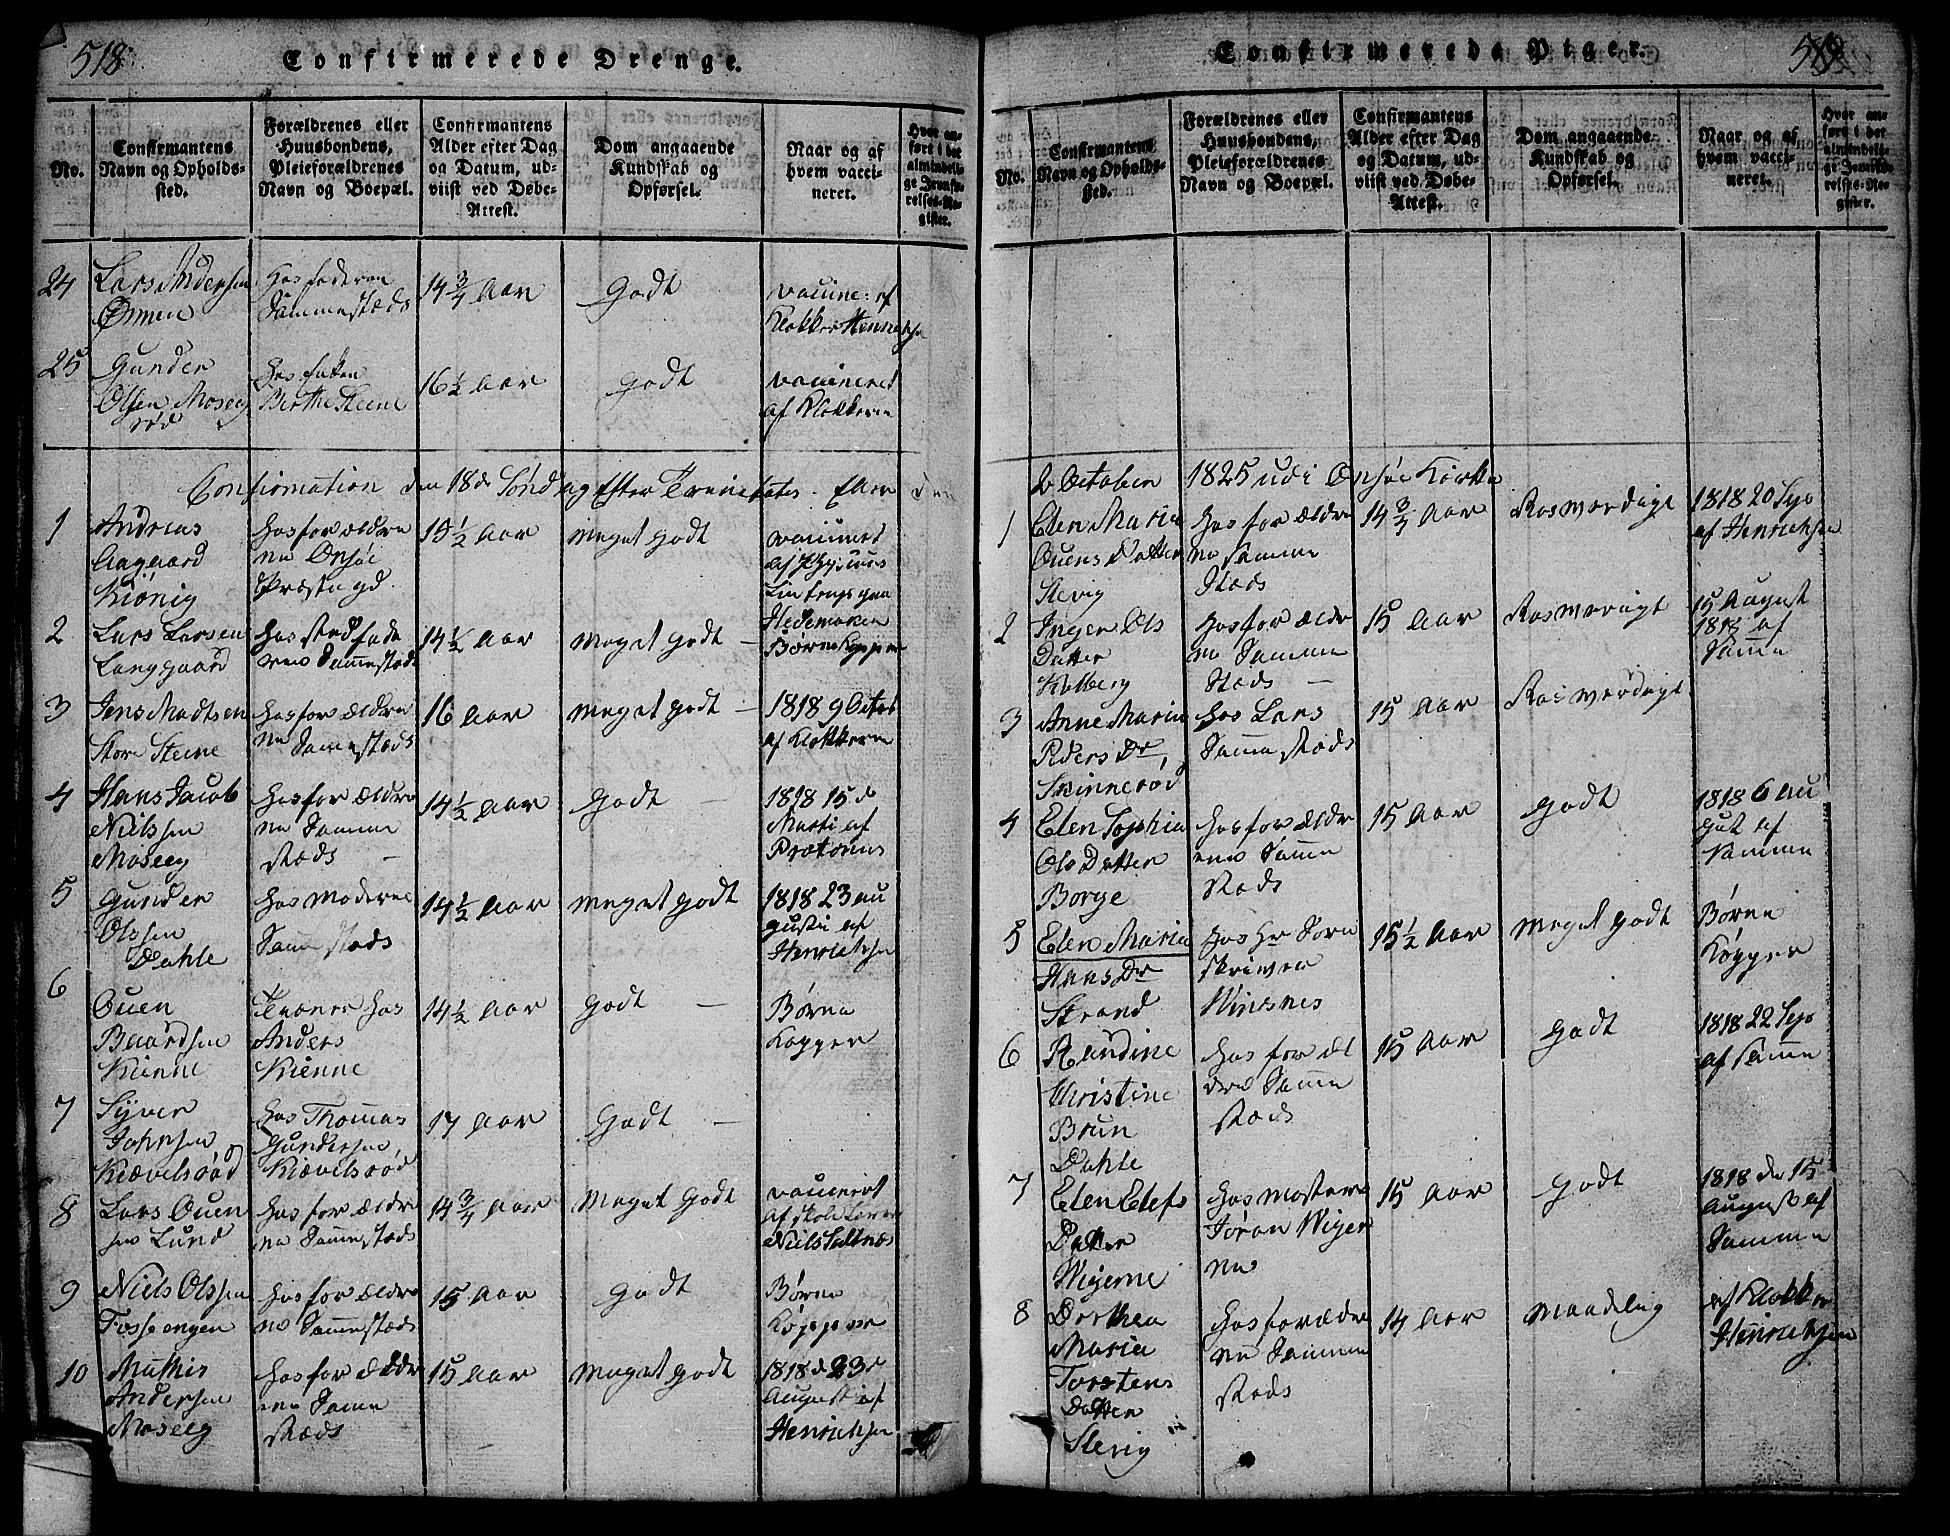 518
Confirmerede Drenge.
No.
Confirmantens
Navn og Opholds-
sted.
Forældrenes eller
Huusbondens,
Pleieforældrenes
Navn og Boepæl.
Confirmantens
Alder efter Dag
og Datum, ud-
viist ved Døbe-
Attest.
Dom angaaende
Kundskab og
Opførsel.
Naar og af
hvem vacci-
neret.
Hvor an-
ført i det
almindeli-
ge Jevnfø-
relses-Re-
gister.
24
Lars Andersen
Ønnen
hos faderen
Sammestæds
14 3/4 Aar
Godt
vaccine: af
Klokker Henrichsen
25
Gunder
Olsen Moseg
rød
Berthe Steene
16 1/2 Aar
Godt
vaccineret
af Klokkeren
Confirmation den 18de Søndag Efter Trinitatis. Eller den
1
Andreas
Aagaard
Kiønig
hos forældre
ne Onsøe
Præstegd.
15 1/2 Aar
Meget Godt
vaccineret
af Physicus
Hedemarken
2
Lars Larsen
Langgaard
hos Stedfade
ren Sammestæds
14 1/2 Aar
Meget Godt –
Børne Kopper
3
Jens Madtsen
Store Steene
hos forældre
ne Sammestæds
16 Aar
Meget Godt –
1818 9 Octob
af Klokkeren
4
Hans Jacob
Nielssen
Moseeg
hos forældre
ne Samme
stæds –
14 1/2 Aar
Godt –
1818 15 d
Marti af
Prætorius
5
Gunder
Olssen
Dahle
hos Moderen
Samme stæds
14 1/2 Aar
Meget Godt
1818 23 au
gusti af
Henrichsen
6
Ouen
Baardsen
Kienne
Tienner hos
Anders
Kienne
14 1/2 Aar
Godt –
Børne
Kopper
7
Syver
Johnsen
Kiævelsrød
hos Thommas
Gundersen
Kiævelsrød
17 Aar
Godt –
8
Lars Ouen
sen Lund
hos forældre
ne Sammestæds
14 3/4 Aar
Meget Godt
vaccineret
af Skole Lærer
Niels Saltnæs
9
Niels Olssen
Fosse engen
hos forældre
ne Sammestæds
15 Aar
Godt
Børne
Kopper
10
Mathis
Andersen
Moseeg
hos forældr
ene Samme
stæds
15 Aar
Meget Godt
1818 d 23d
August af
Henrichsen
Confirmerede Piger.
519
No.
Confirmantens
Navn og Opholds-
sted.
Forældrenes eller
Huusbondens,
Pleieforældrenes
Navn og Boepæl.
Confirmantens
Alder efter Dag
og Datum, ud-
viist ved Døbe-
Attest.
Dom angaaende
Kundskab og
Opførsel.
Naar og af
hvem vacci-
neret.
Hvor an-
ført i det
almindeli-
ge Jevnfø-
relses-Re-
gister.
2 October 1825 udi Onsøe Kirke
1
Elen Maria
Ouens Datter
Slevig
hos forældre
ne Samme
Stæds
14 3/4 Aar
Rosværdigt
1818 20 Sep
af Henrichsen
2
Inger Ols
Datter
Kolberg
hos forældr
ne Samme
Stæds –
15 Aar
Rosværdigt
15 August
1818 af
Samme
3
Anne Maria
Peders Dr
Skinnerød
hos Lars
Samme Stæds
15 Aar
Rosværdigt
4
Elen Sophia
Ols Datter
Borge
hos forældr
ene Samme
Stæds
15 Aar
Godt
1818 6 au
gust af
Samme
5
Elen Maria
Hans Dr
Strand
hos Hr Soren
skriver
15 1/2 Aar
Meget Godt
Børne
Kopper
6
Randine
Christine
Brun
Dahle
hos foræl
dre Samme
Stæds
15 Aar
Godt
1818 22 Sep
af Samme
7
Elen Elefs
Datter
Wigerne
hos Mosteren
Joran Wiger
ne
15 Aar
Godt
1818 de 15
August af
Samme
8
Dorthea
Maria
Torstens
Datter
Slevig
hos forældre
ne Samme
stæds
14 Aar
Maadelig
af Klokker
Henrichsen